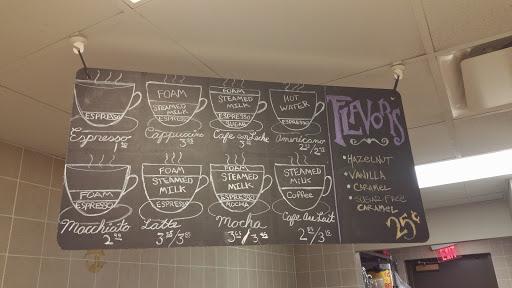 ESPRESSO
Espresso
FOAM
STEAMED
MILK
ESPRESSO
Cappuccino
FOAM
STEAMED
MILK
ESPRESSO
SUGAR
Cafe con Leche
HOT
WATER
ESPRESSO
Americano
FOAM
ESPRESSO
Macchiato
FOAM
STEAMED
MILK
ESPRESSO
Latte
FOAM
STEAMED
MILK
ESPRESSO
MOCHA
Mocha
STEAMED
MILK
Coffee
Cafe Au Lait
FLAVORS
• HAZELNUT
• VANILLA
• CARAMEL
• SUGAR FREE
CARAMEL
25¢
EXIT